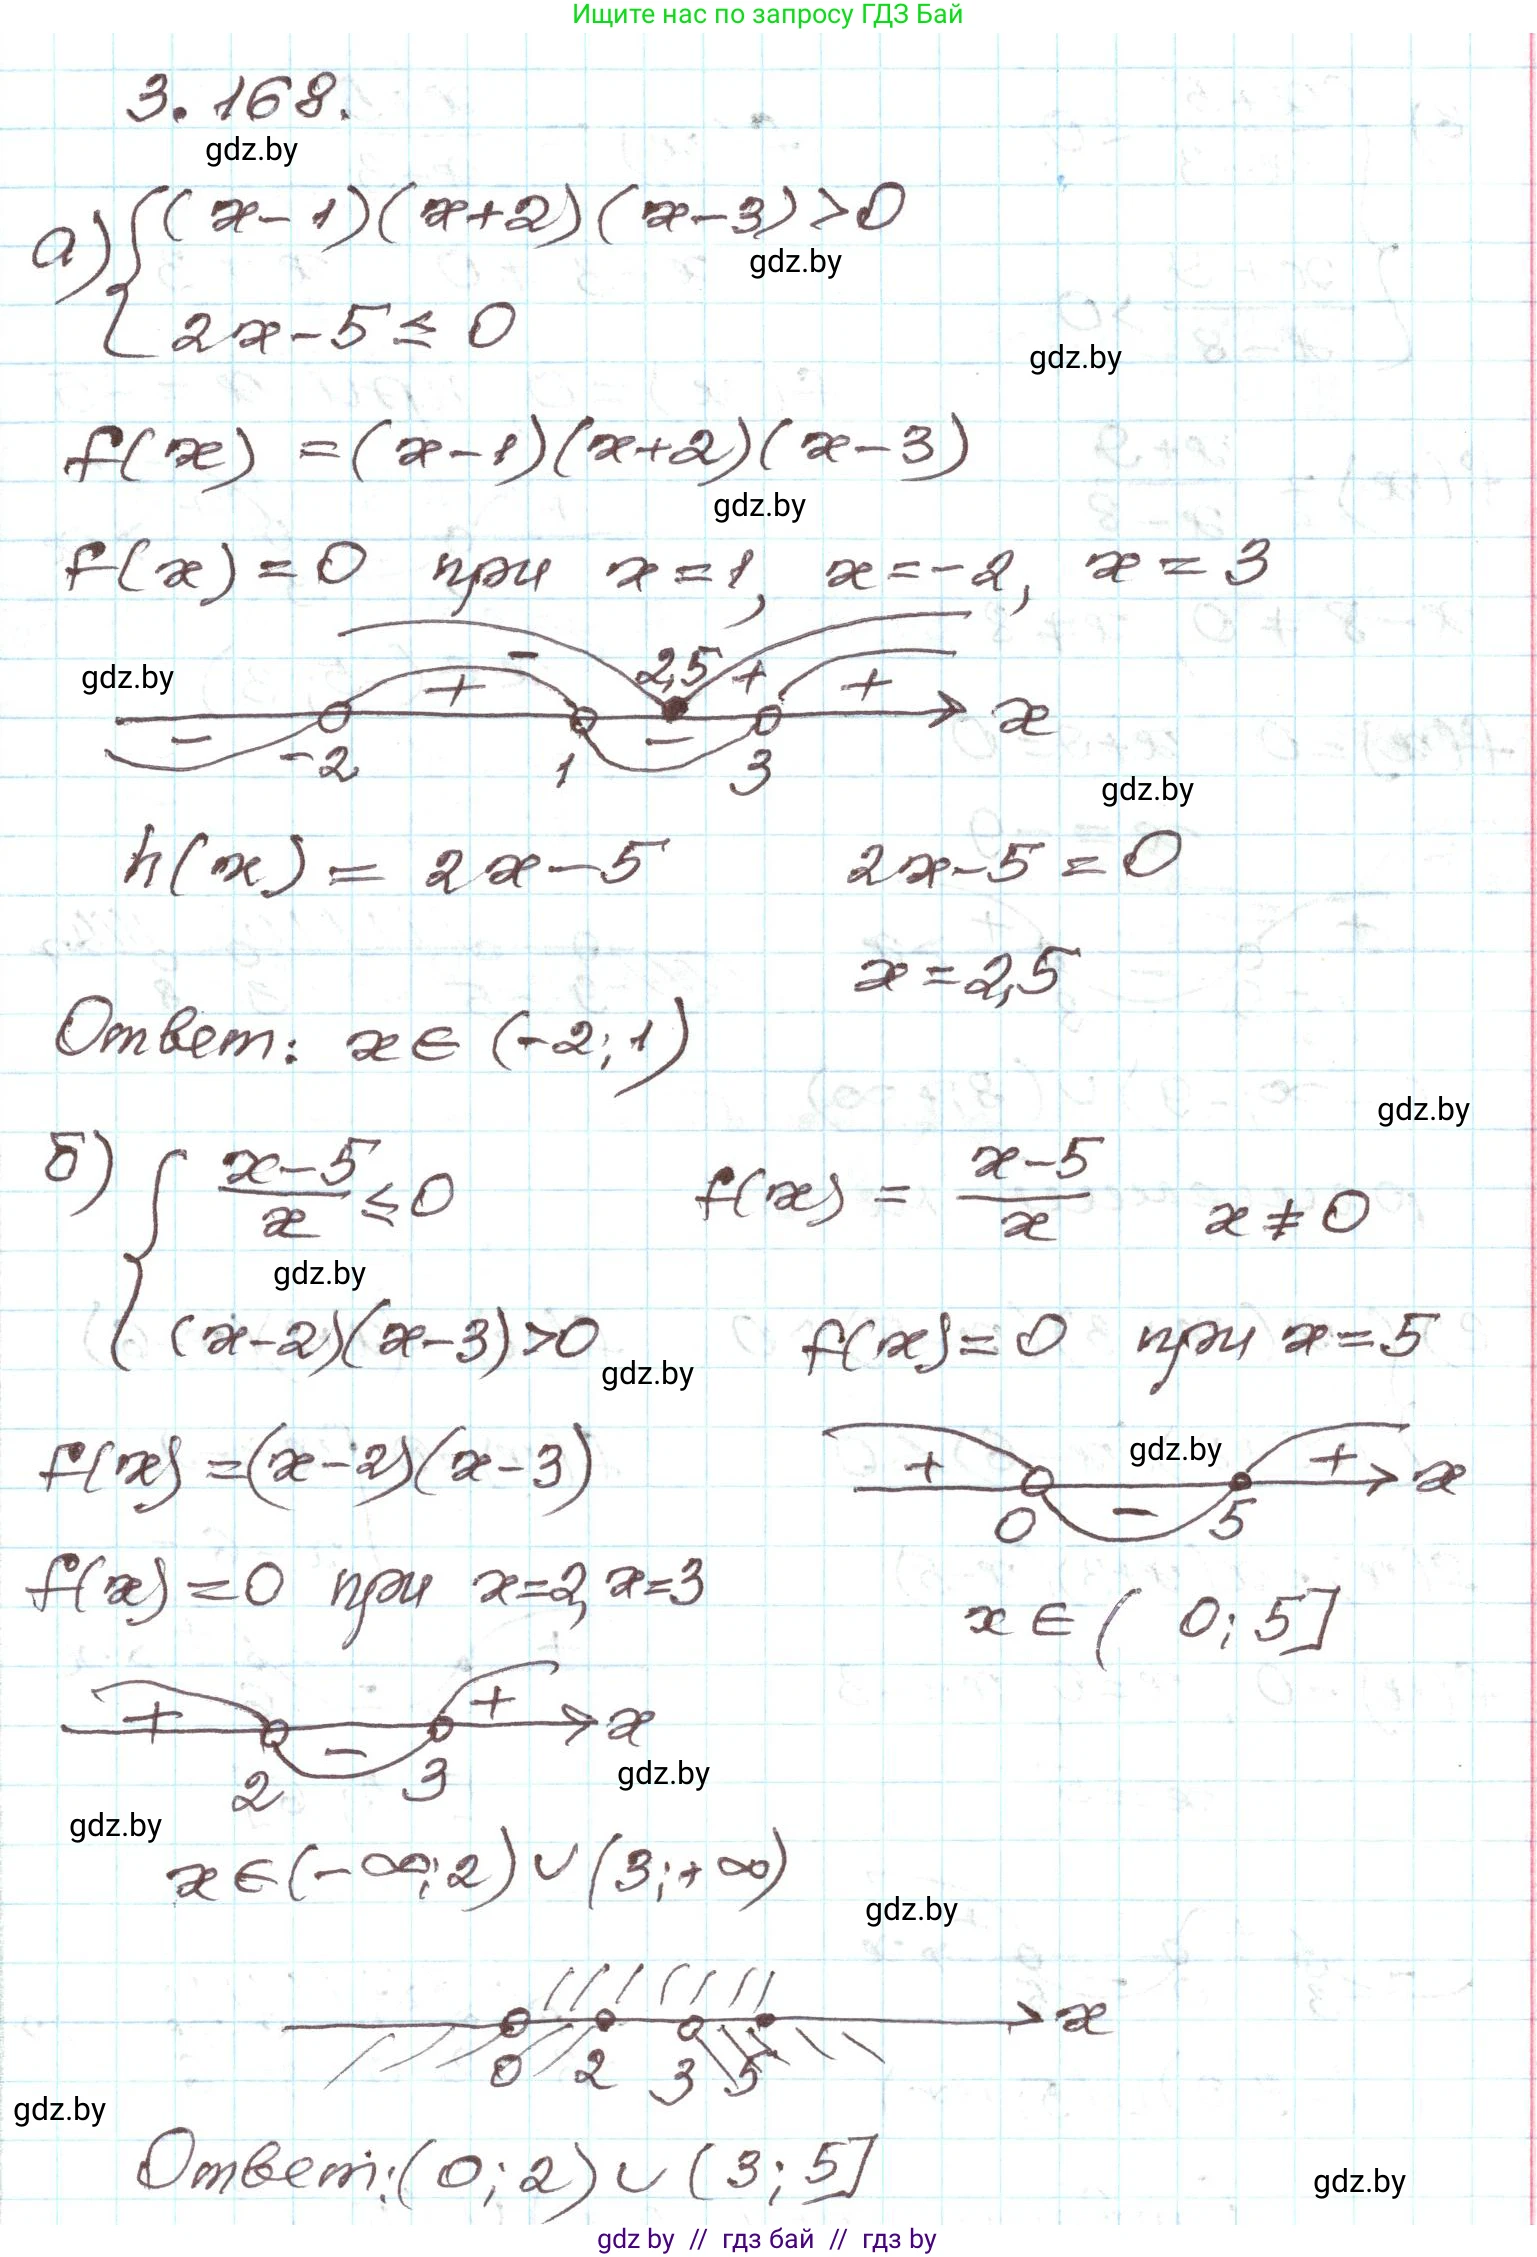 Ищите нас по запросу ГДЗ Бай
3.168.
gdz.by
а) { (x-1)(x+2)(x-3)>0
gdz.by
2x-5≤0
gdz.by
f(x) =(x-1)(x+2)(x-3)
gdz.by
f(x)=0 при x=1, x=-2, x=3
gdz.by
- + - 2,5 + - + x
-2 1 3
gdz.by
h(x)= 2x-5 2x-5=0
x=2,5
Ответ: x∈ (-2;1)
gdz.by
б) { x-5/x ≤0 f(x) = x-5/x x≠0
gdz.by
(x-2)(x-3)>0 f(x)=0 при x=5
gdz.by
f(x)=(x-2)(x-3)
gdz.by
+ - + x
0 5
f(x)=0 при x=2, x=3
x∈( 0; 5]
+ - + x
2 3
gdz.by
gdz.by
x∈(-∞;2)∪(3;+∞)
gdz.by
x
0 2 3 5
gdz.by
Ответ:(0;2)∪(3;5]
gdz.by
gdz by // гдз бай // гдз by